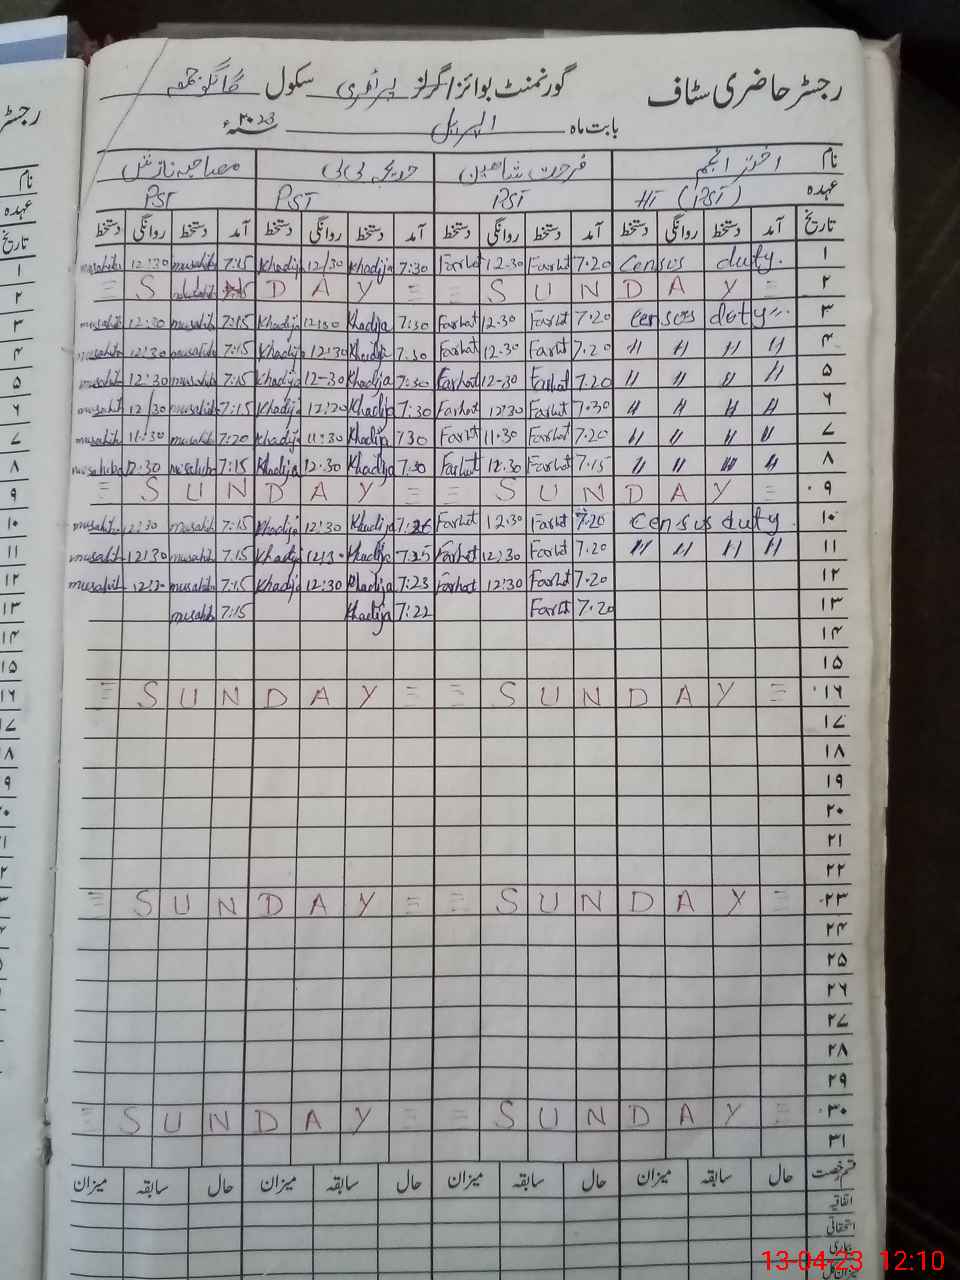 رجسٹر حاضری سٹاف گورنمنٹ بوائز/گرلز پرائمری سکول
بابت ماہ اپریل ۲۰23ء
نام اختر انجم فرحت شاہین خدیجہ بی بی مصاحبہ نازش
عہدہ HT (PST) PST PST PST
تاریخ آمد دستخط روانگی دستخط آمد دستخط روانگی دستخط آمد دستخط روانگی دستخط آمد دستخط روانگی دستخط
musahiba 12:30 musahib 7:15 Khadija 12/30 Khadija 7:30 Farhat 12.30 Farhat 7.20 Census duty. ۱
S U N D A Y S U N D A Y ۲
musahib 12:30 musahib 7:15 Khadija 12:30 Khadija 7:30 Farhat 12.30 Farhat 7.20 Census duty 〃 ۳
musahib 12:30 musahib 7:15 Khadija 12:30 Khadija 7.30 Farhat 12.30 Farhat 7.20 〃 〃 〃 〃 ۴
musahib 12:30 musahib 7:15 Khadija 12-30 Khadija 7:30 Farhat 12-30 Farhat 7.20 〃 〃 〃 〃 ۵
musahib 12/30 musahib 7:15 Khadija 12:20 Khadija 7:30 Farhat 12:30 Farhat 7.30 〃 〃 〃 〃 ۶
musahib 11:30 musahib 7:20 Khadija 11:30 Khadija 730 Farhat 11.30 Farhat 7.20 〃 〃 〃 〃 ۷
musahiba 12.30 musahiba 7:15 Khadija 12.30 Khadija 7.30 Farhat 12.30 Farhat 7.15 〃 〃 〃 〃 ۸
S U N D A Y S U N D A Y ۹
musahib 12:30 musahib 7:15 Khadija 12:30 Khadija Farhat 12.30 Farhat 7.20 Census duty ۱۰
musahib 12:30 musahib 7.15 Khadija Khadija 7.25 Farhat 12:30 Farhat 7.20 〃 〃 〃 〃 ۱۱
musahib musahib 7:15 Khadija 12:30 Khadija 7:23 Farhat 12:30 Farhat 7.20 ۱۲
musahib 7:15 Khadija 7:22 Farhat 7.20 ۱۳
۱۴
۱۵
S U N D A Y S U N D A Y ۱۶
۱۷
۱۸
۱۹
۲۰
۲۱
۲۲
S U N D A Y S U N D A Y ۲۳
۲۴
۲۵
۲۶
۲۷
۲۸
۲۹
S U N D A Y S U N D A Y ۳۰
۳۱
قسم رخصت حال سابقہ میزان حال سابقہ میزان حال سابقہ میزان حال سابقہ میزان
اتفاقیہ
استحقاقی
بیماری
میزان کل
13-04-23 12:10